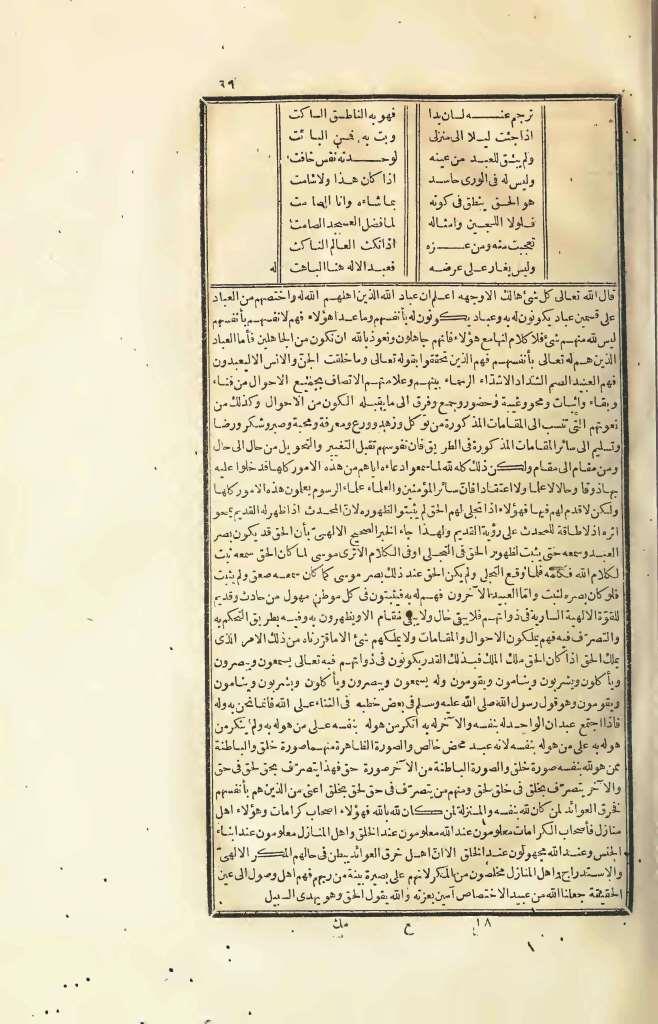 ٦٩
ترجم عنه لسان بدا فهو به الناطق الساكت
اذا جئت ليلا الى منزلى وبت به فمن البائت
ولم يبق للعبد من عينه لوحدته نفس خافت
وليس له فى الورى حاسد اذا كان هذا ولا شامت
هو الحق ينطق فى كونه بما شاءه وانا الصامت
فلولا اللجين وامثاله لما فضل العسجد الصامت
تعجبت منه ومن عزه اذا نكت العالم الناكت
وليس يغار على عرضه فعبد الاله هنا الباهت له
قال الله تعالى كل شئ هالك الا وجهه اعلم ان عباد الله الذين اهلهم الله له واختصهم من العباد
على قسمين عباد يكونون له به وعباد يكونون له بأنفسهم وما عدا هؤلاء فهم لا نفسهم بأنفسهم
ليس لله منهم شئ فلا كلام لنا مع هؤلاء فانهم جاهلون ونعوذ بالله ان نكون من الجاهلين فأما العباد
الذين هم له تعالى بأنفسهم فهم الذين تحققوا بقوله تعالى وما خلقت الجن والانس الا ليعبدون
فهم العبيد الصم الشداد الاشداء الرحماء بينهم وعلامتهم الاتصاف بجميع الاحوال من فناء
وبقاء واثبات ومحو وغيبة وحضور وجمع وفرق الى ما يقبله الكون من الاحوال وكذلك من
نعوتهم التى تنسب الى المقامات المذكورة من توكل وزهد وورع ومعرفة ومحبة وصبر وشكر ورضا
وتسليم الى سائر المقامات المذكورة فى الطريق فان نفوسهم تقبل التغيير والتحويل من حال الى حال
ومن مقام الى مقام ولكن ذلك كله لله لما سمعوا دعاءه اياهم من هذه الامور كلها فدخلوا عليه
بها ذوقا وحالا لا علما ولا اعتقادا فان سائر المؤمنين والعلماء علماء الرسوم يعلمون هذه الامور كلها
ولكن لا قدم لهم فيها فهؤلاء اذا تجلى لهم الحق لم يثبتوا لظهوره لان المحدث اذا ظهر له القديم يمحو
اثره اذ لا طاقة للمحدث على رؤية القديم ولهذا جاء الخبر الصحيح الالهى بأن الحق قد يكون بصر
العبد وسمعه حتى يثبت لظهور الحق فى التجلى او فى الكلام الا ترى موسى لما كان الحق سمعه ثبت
لكلام الله فكلمه فلما وقع التجلى ولم يكن الحق عند ذلك بصر موسى كما كان سمعه صعق ولم يثبت
فلو كان بصره لثبت واما العبيد الآخرون فهم له به فيثبتون فى كل موطن مهول من حادث وقديم
للقوة الالهية السارية فى ذواتهم فلا يبقى حال ولا يبقى مقام الا ويظهرون به وفيه بطريق التحكم به
والتصرف فيه فهم يملكون الاحوال والمقامات ولا يملكهم شئ الا ما قررناه من ذلك الامر الذى
يملك الحق اذا كان الحق ملك الملك فبذلك القدر يكونون فى ذواتهم فبه تعالى يسمعون ويبصرون
ويأكلون ويشربون وينامون ويقومون وله يسمعون ويبصرون ويأكلون ويشربون وينامون
ويقومون وهو قول رسول الله صلى الله عليه وسلم فى بعض خطبه فى الثناء على الله فانما نحن به وله
فاذا اجتمع عبدان الواحد له بنفسه والآخر له به انكر من هو له بنفسه على من هو له به ولم ينكر من
هو له به على من هو له بنفسه لانه عبد محض خالص والصورة الظاهرة منهما صورة خلق والباطنة
ممن هو لله بنفسه صورة خلق والصورة الباطنة من الآخر صورة حق فهذا يتصرف بحق لحق فى حق
والآخر يتصرف بخلق فى خلق لحق ومنهم من يتصرف فى حق لحق بخلق اعنى من الذين هم بأنفسهم
فخرق العوائد لمن كان لله بنفسه والمنزلة لمن كان لله بالله فهؤلاء اصحاب كرامات وهؤلاء اهل
منازل فأصحاب الكرامات معلومون عند الله معلومون عند الخلق واهل المنازل معلومون عند ابناء
الجنس وعند الله مجهولون عند الخلق الا ان اهل خرق العوائد يبطن فى حالهم المكر الالهى
والاستدراج واهل المنازل مخلصون من المكر لانهم على بصيرة بينة من ربهم فهم اهل وصول الى عين
الحقيقة جعلنا الله من عبيد الاختصاص آمين بعزته والله يقول الحق وهو يهدى السبيل
١٨ ح مك